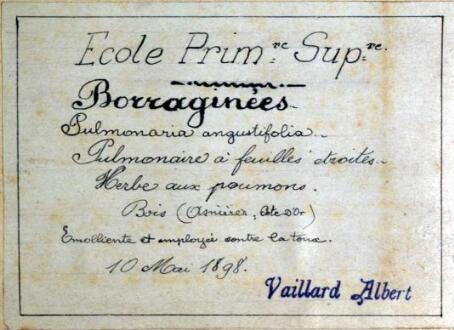 Ecole Prim.re Sup.re
Borraginées
Pulmonaria angustifolia.
Pulmonaire à feuilles étroites.
Herbe aux poumons.
Bois (Asnières, Côte d'Or)
Emolliente et employée contre la toux.
10 Mai 1898.
Vaillard Albert